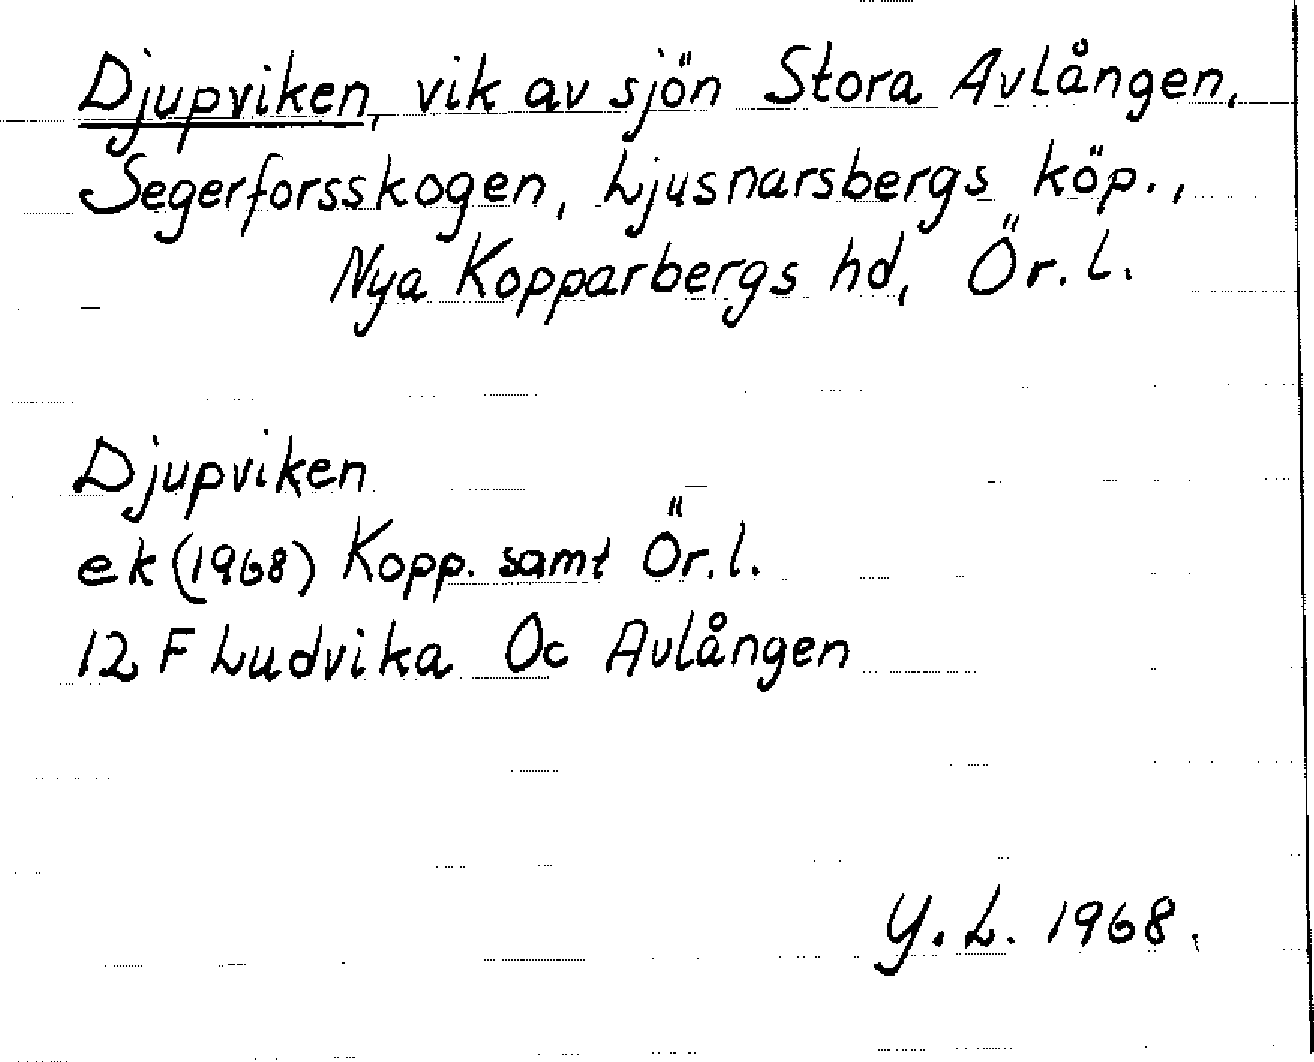 Djupviken, vik av sjön Stora Avlången,
Segerforsskogen, Ljusnarsbergs köp.,
Nya Kopparbergs hd, Ör. l.
Djupviken
ek (1968) Kopp. samt Ör. l.
12 F Ludvika Oc Avlången
Y. L. 1968.